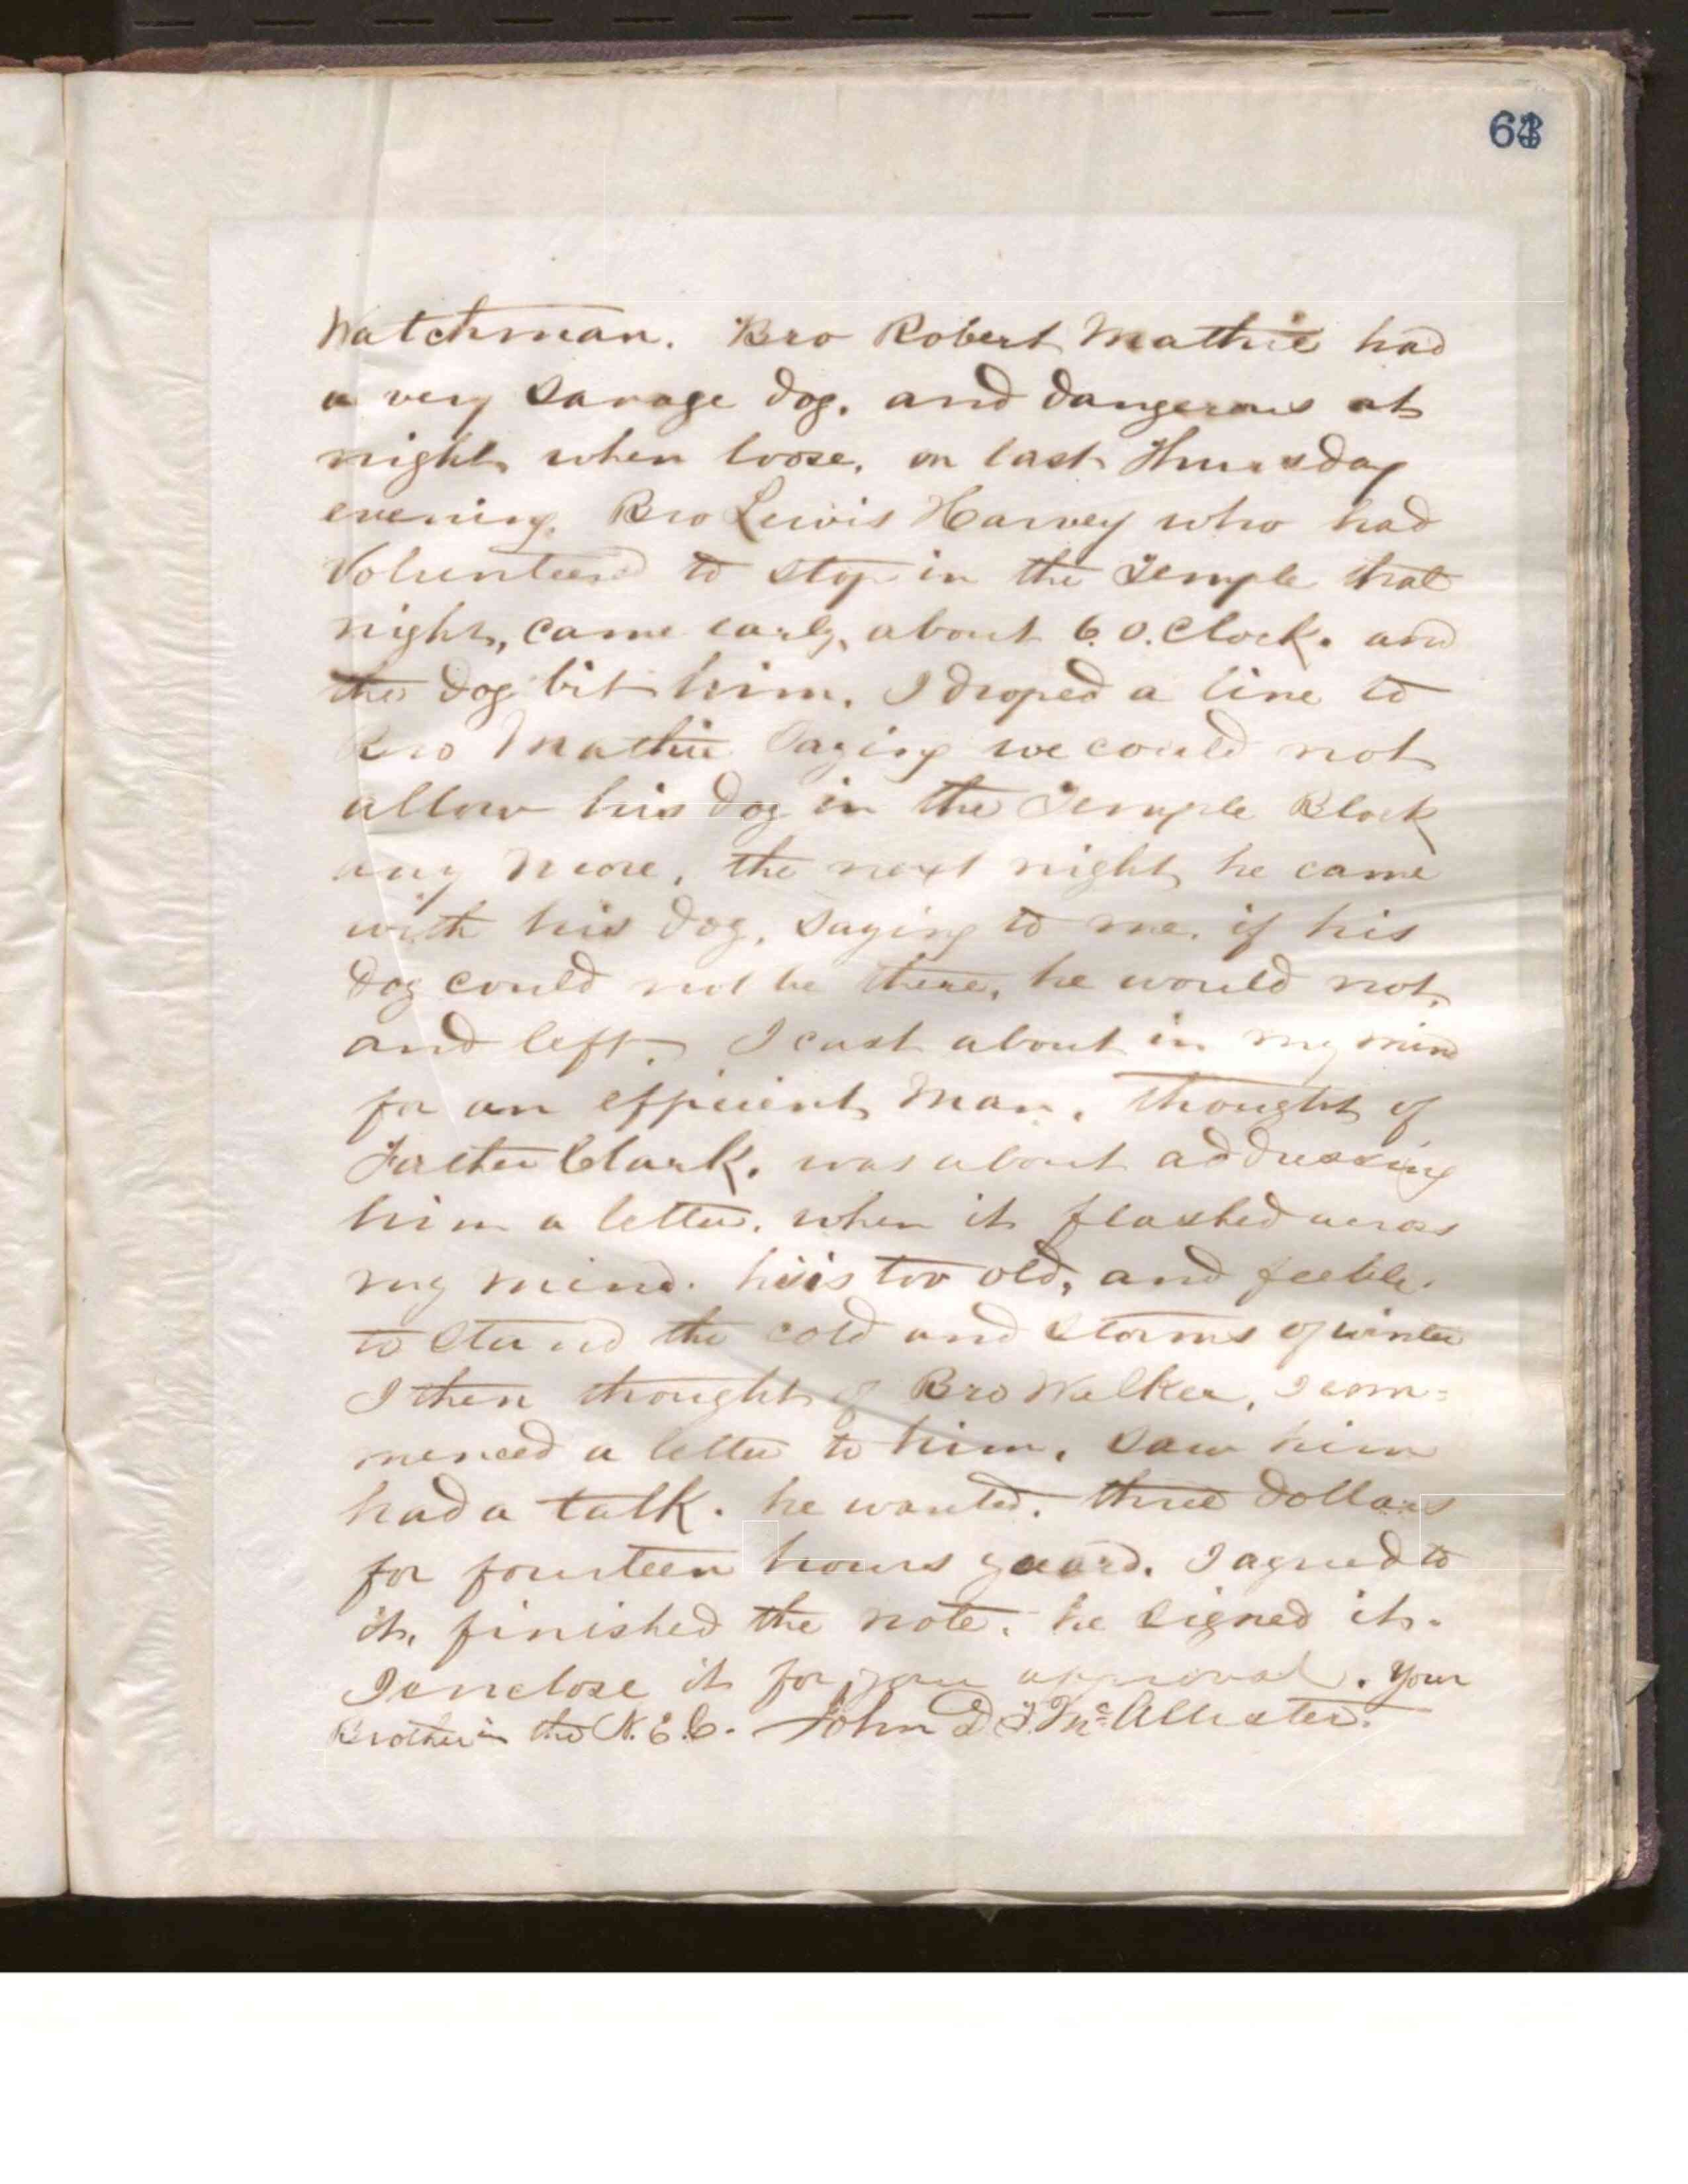 63
Watchman. Bro Robert Mathie had
a very Savage dog. and dangerous at
night when loose. on last Thursday
evening. Bro Lewis Harvey who had
Volunteered to stop in the Temple that
night, came early, about 6. O. Clock. and
the dog bit him. I droped a line to
Bro Mathie Saying we could not
allow his dog in the Temple Block
any more, the next night he came
with his dog, saying to me, if his
dog could not be there, he would not,
and left. I cast about in my mind
for an efficient man, thought of
Clark. was about addressing
him a letter. when it flashed across
my mind. he is too old, and feeble.
to stand the cold and storms of winter
I then thought of Bro Walker, I com=
menced a letter to him, Saw him
had a talk. he wanted. three dollars
for fourteen hours guard. I agreed to
it, finished the note. he signed it.
I enclose it for your approval. Your
Brother in the N. E. C. John D. T. McAllister.